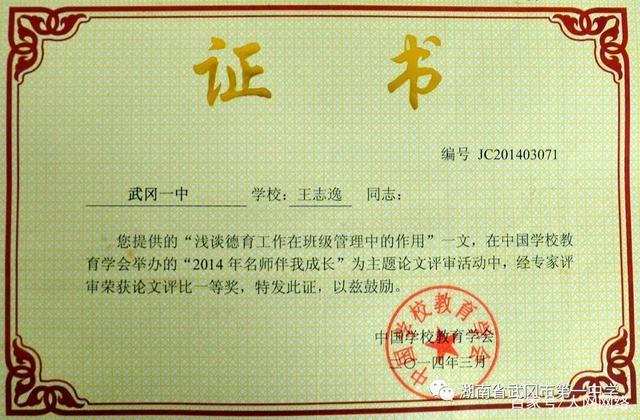 证书
编号 JC201403071
武冈一中 学校：王志逸 同志：
您提供的“浅谈德育工作在班级管理中的作用”一文，在中国学校教
育学会举办的“2014年名师伴我成长”为主题论文评审活动中，经专家评
审荣获论文评比一等奖，特发此证，以兹鼓励。
中国学校教育学会
二〇一四年三月
中国学校教育学会
湖南省武冈市第一中学